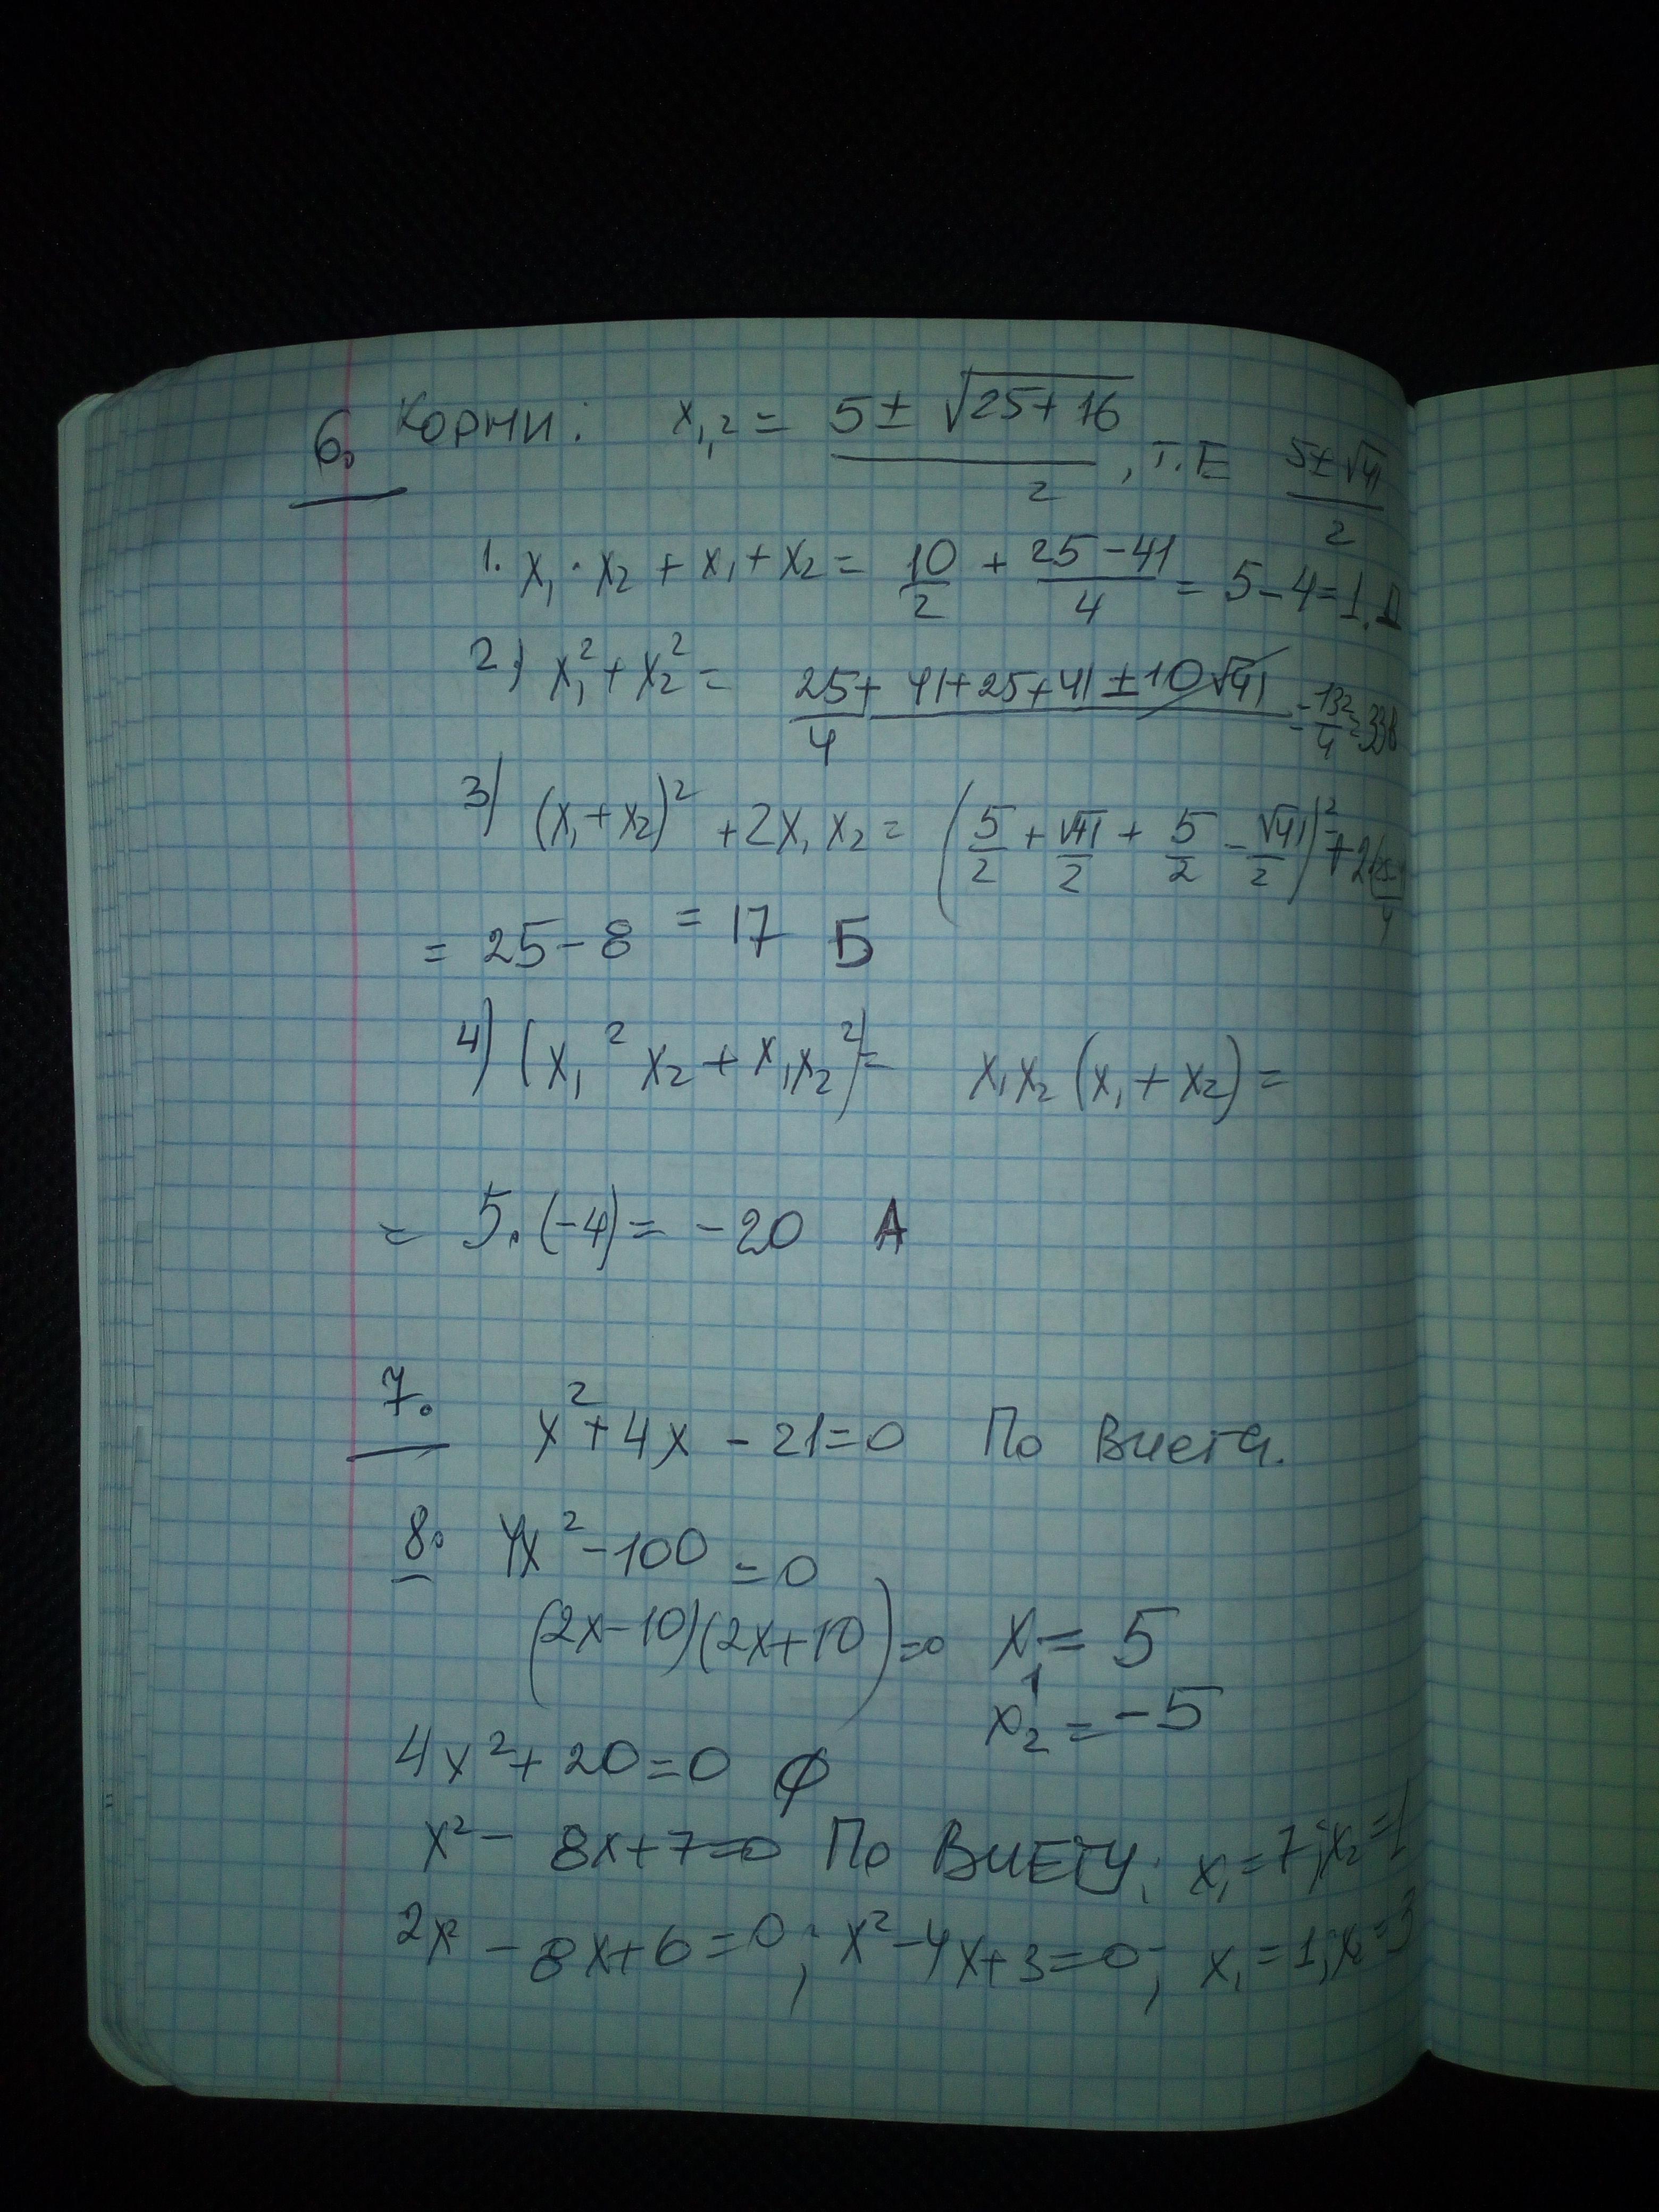 6. Корни: x₁,₂ = (5 ± √(25 + 16))/2, т.Е (5 ± √41)/2
1. x₁ · x₂ + x₁ + x₂ = 10/2 + (25 - 41)/4 = 5 - 4 = 1. Д
2) x₁² + x₂² = (25 + 41 + 25 + 41 ± 10√41)/4 = 132/4 = 33 В
3) (x₁ + x₂)² + 2x₁x₂ = (5/2 + √41/2 + 5/2 - √41/2)² +
= 25 - 8 = 17 Б
4) (x₁²x₂ + x₁x₂²) = x₁x₂(x₁ + x₂) =
= 5 · (-4) = -20 А
7. x² + 4x - 21 = 0 По Виета.
8. 4x² - 100 = 0
(2x - 10)(2x + 10) = 0 x₁ = 5
x₂ = -5
4x² + 20 = 0 ∅
x² - 8x + 7 = 0 По ВИЕТУ: x₁ = 7; x₂ = 1
2x² - 8x + 6 = 0; x² - 4x + 3 = 0; x₁ = 1; x₂ = 3